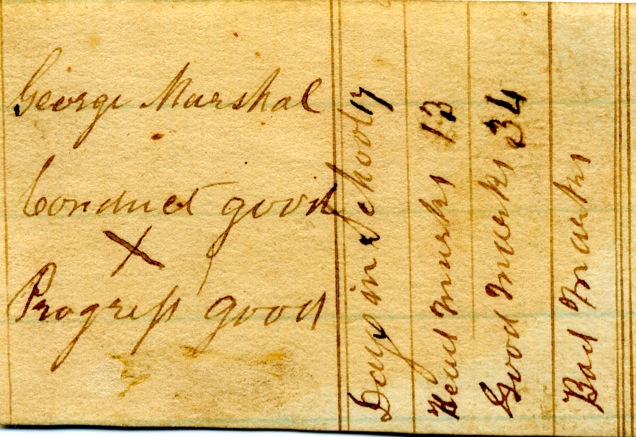 George Marshal
Conduct good
X
Progreſs good
Days in School 17
Head Marks 13
Good Marks 34
Bad Marks